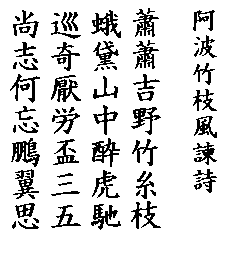 阿波竹枝風諌詩
蕭蕭吉野竹糸枝
蛾黛山中酔虎馳
巡奇厭労盃三五
尚志何忘鵬翼思